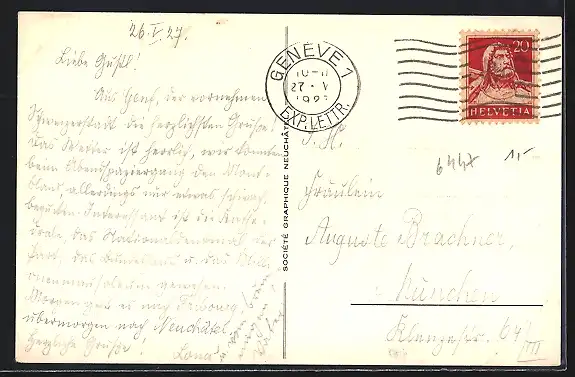 26.V.27.
Liebe Gustl!
Aus Genf, der vornehmen
Schweizerstadt die herzlichsten Grüsse!
Das Wetter ist herrlich, wir konnten
beim Abendspaziergang den Mont-
blanc allerdings nur etwas schwach
Interessant ist die Kathe-
drale, das Nationaldenkmal, der
Park, das u. das
Morgen geht es nach Fribourg,
übermorgen nach Neuchâtel.
Herzliche Grüsse! Lona
SOCIÉTÉ GRAPHIQUE NEUCHÂTEL
GENÈVE 1
10-11
27 V
EXP. LETTR.
20
HELVETIA
6447 1,-
Fräulein
Auguste Brachner,
München
Klenzestr. 64/III